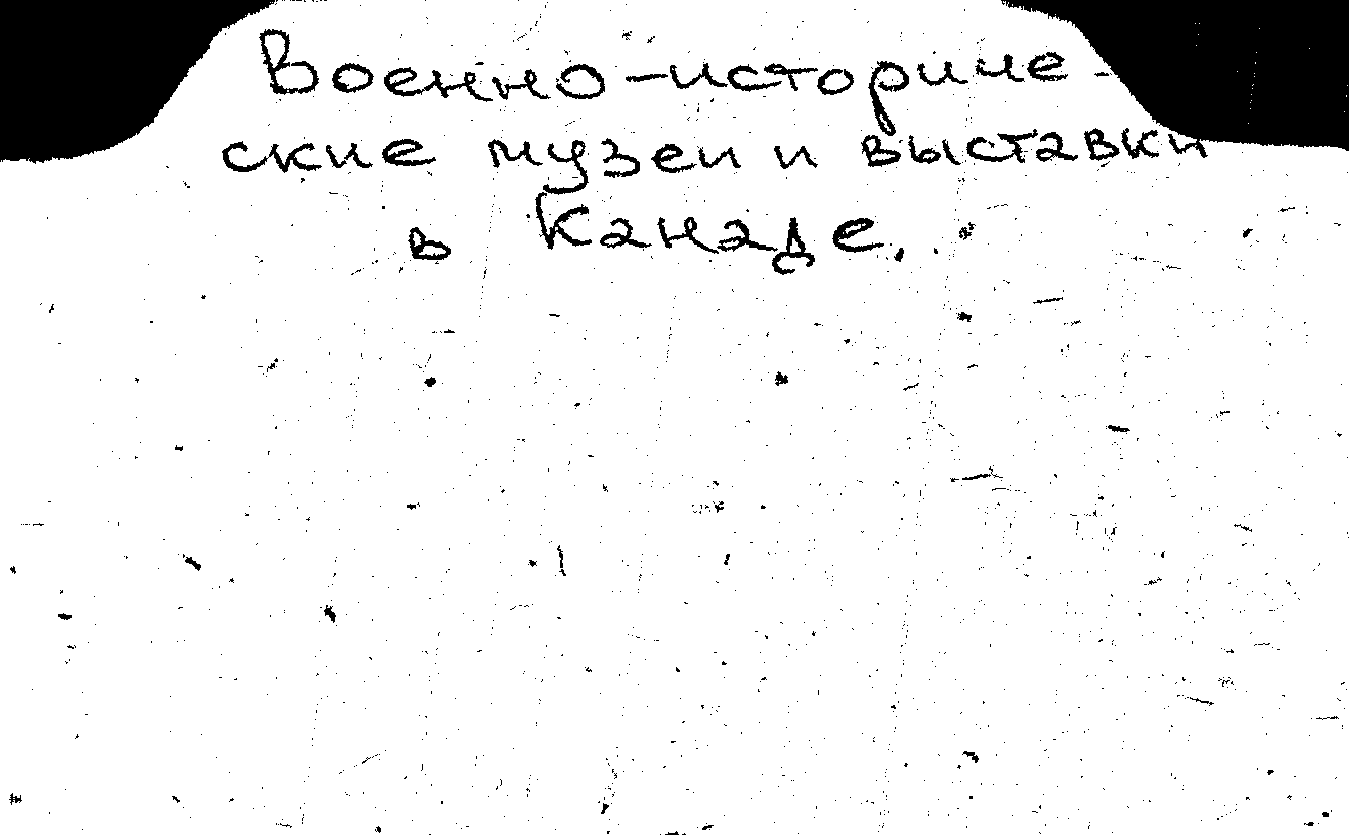 Военно-историче-
ские музеи и выставки
в Канаде.